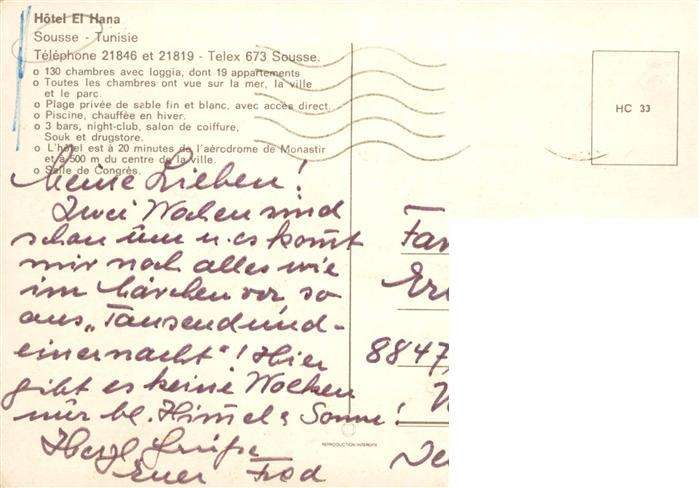 Hôtel El Hana
Sousse - Tunisie
Téléphone 21846 et 21819 - Telex 673 Sousse.
o 130 chambres avec loggia, dont 19 appartements
o Toutes les chambres ont vue sur la mer, la ville
et le parc.
o Plage privée de sable fin et blanc, avec accès direct.
o Piscine, chauffée en hiver.
o 3 bars, night-club, salon de coiffure,
Souk et drugstore.
o L'hôtel est à 20 minutes de l'aérodrome de Monastir
et à 500 m du centre de la ville.
o Salle de Congrès.
HC 33
Meine Lieben!
Zwei Wochen sind
schon um u. es kom̄t
mir noch alles wie
im Märchen vor so
aus „Tausendund-
einernacht"! Hier
gibt es keine Wolken
nur bl. Him̄el & Sonne!
Herzl Grüße
Euer
Fam
8847,
REPRODUCTION INTERDITE